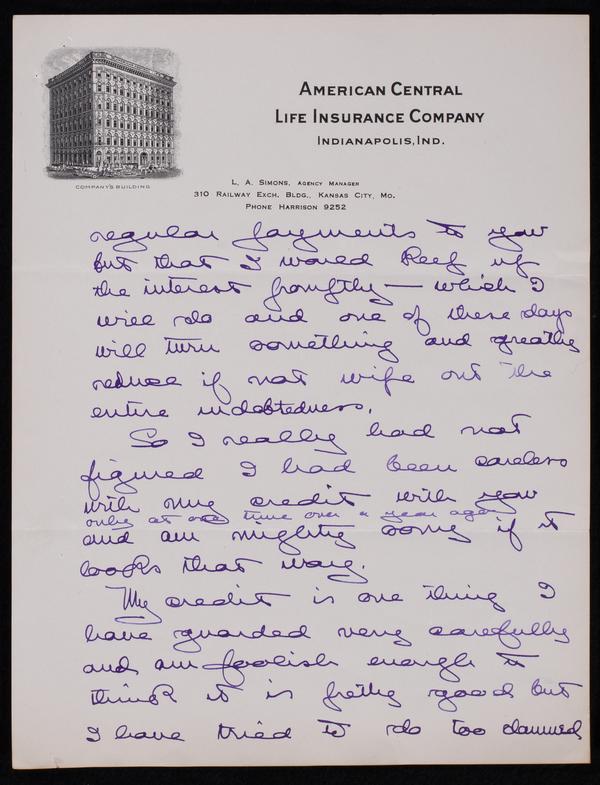 COMPANY'S BUILDING
AMERICAN CENTRAL
LIFE INSURANCE COMPANY
INDIANAPOLIS, IND.
L. A. SIMONS, AGENCY MANAGER
310 RAILWAY EXCH. BLDG., KANSAS CITY, MO.
PHONE HARRISON 9252
regular payments to you
but that I would keep up
the interest promptly — which I
will do and one of these days
will turn something and greatly
reduce if not wipe out the
entire indebtedness.
So I really had not
figured I had been careless
with my credit with you
only at one time over a year ago
and am mighty sorry if it
looks that way.
My credit is one thing I
have guarded very carefully
and am foolish enough to
think it is pretty good but
I have tried to do too damned